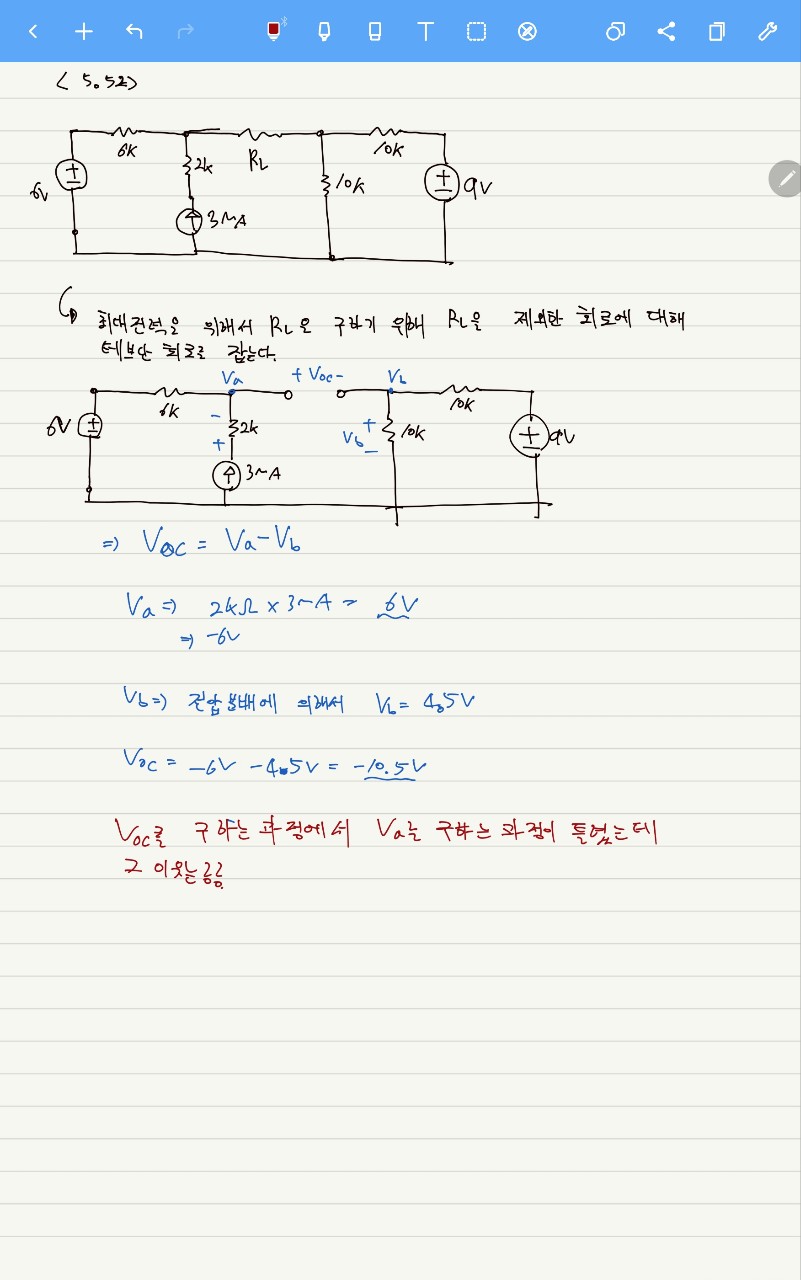 < 5.52>
6K
RL
10K
2k
10K
6V
3mA
9V
최대전력을 위해서 RL을 구하기 위해 RL을 제외한 회로에 대해
테브난 회로로 잡는다.
Va + Voc - Vb
6K
10K
6V
-
2k
+
10K
9V
+
Vb
-
3mA
⇒ Voc = Va-Vb
Va ⇒ 2kΩ × 3mA = 6V
⇒ -6V
Vb ⇒ 전압분배에 의해서 Vb = 4.5V
Voc = -6V -4.5V = -10.5V
Voc를 구하는 과정에서 Va는 구하는 과정이 틀렸는데
그 이웃는